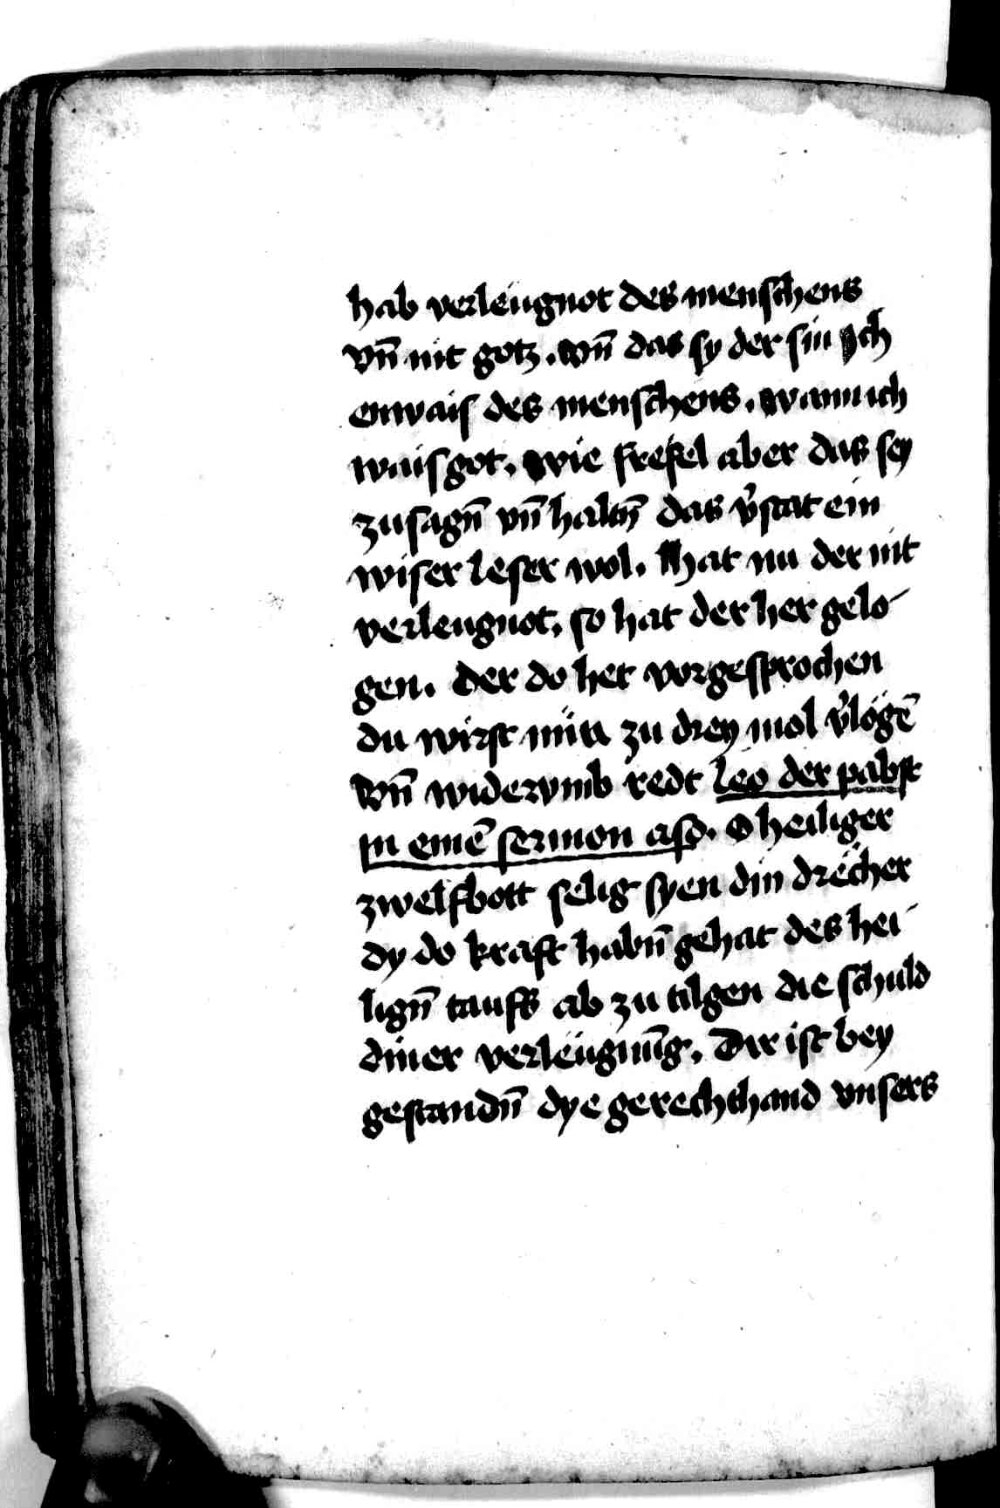 hab verleugnot des menschens
vn̄ nit gotz. vn̄ das sy der sin Ich
enwais des menschens. wann ich
wais got. wie frefel aber das sey
zusagn̄ vn̄ haltn̄ das v̉stat ein
wiser leser wol. hat nu der nit
verleugnot. so hat der her gelo-
gen. der do het vorgesprochen
du wirst zu drey mol v̉lögē
vn̄ widervmb redt leo der pabst
in einē sermon also. O heiliger
zwelfbott selig syen din drëcher
dy do kraft habn̄ gehat des hei-
lign̄ taufs ab zu tilgen die schuld
diner verleügnūg. Dir ist bey
gestandn̄ dye gerechthand vnsers